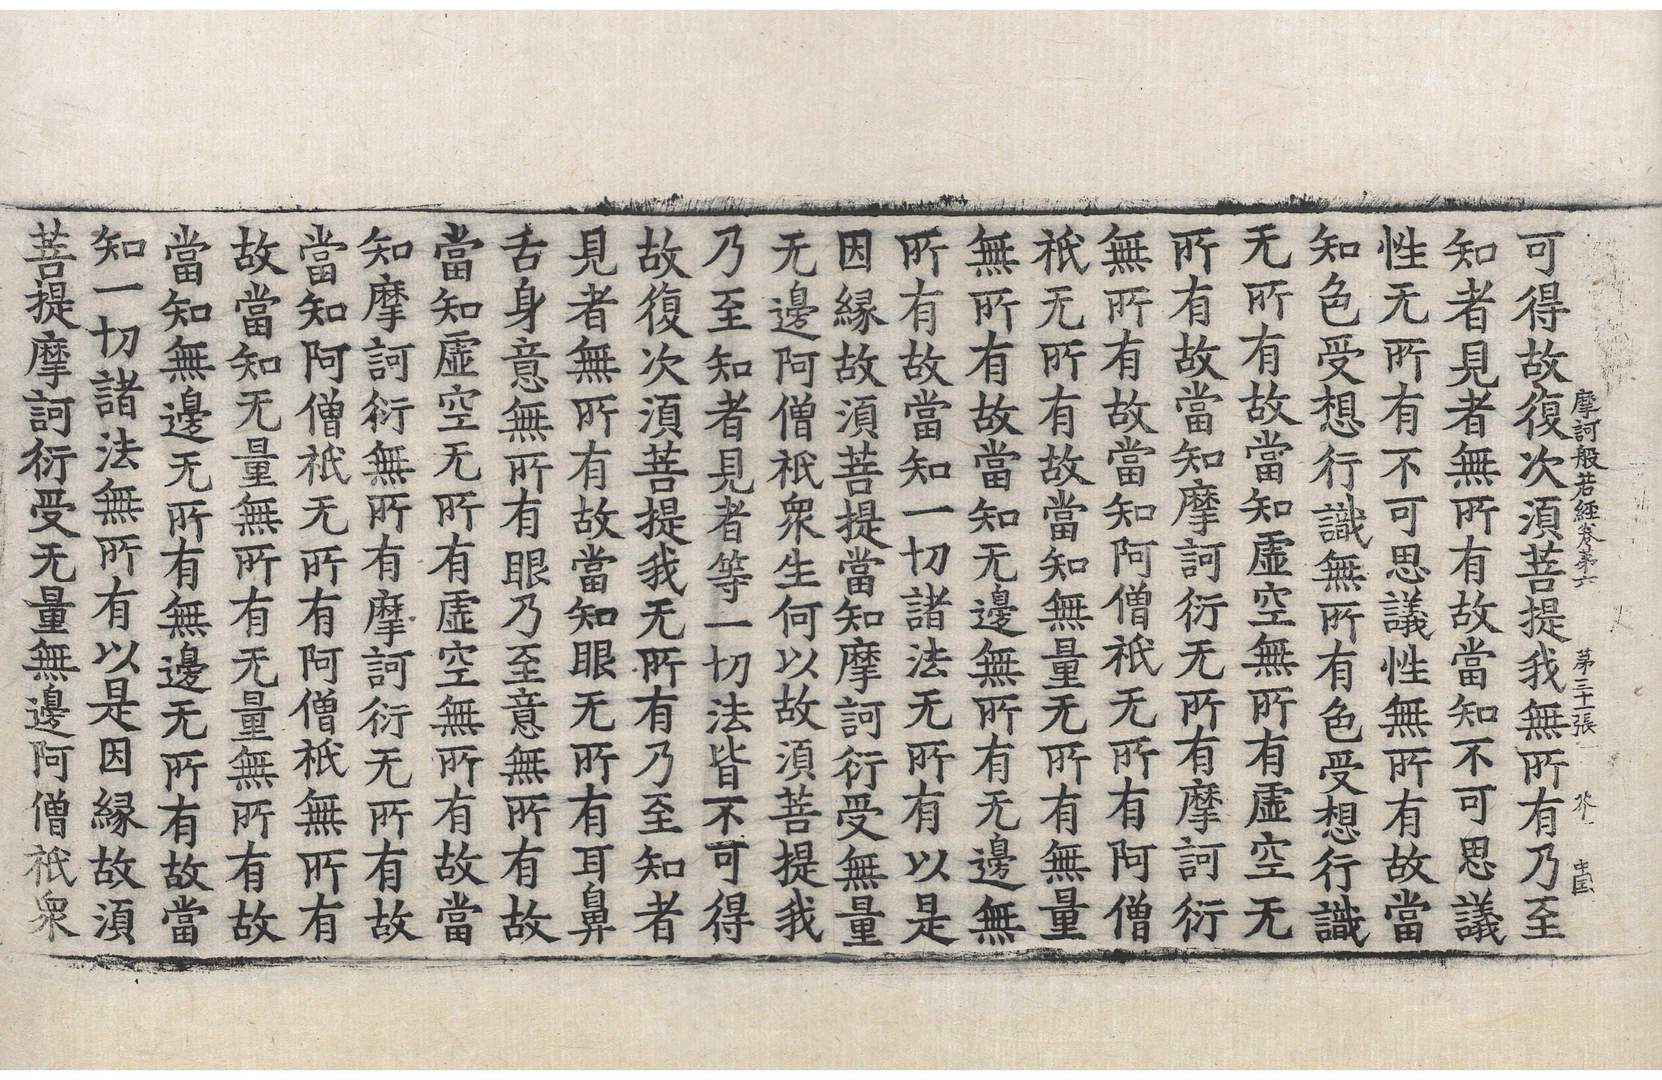 摩訶般若經卷第六 第三十張 芥
可得故復次湏菩提我無所有乃至
知者見者無所有故當知不可思議
性无所有不可思議性無所有故當
知色受想行識無所有色受想行識
无所有故當知虛空無所有虛空无
所有故當知摩訶衍无所有摩訶衍
無所有故當知阿僧祇无所有阿僧
祇无所有故當知無量无所有無量
無所有故當知无邊無所有无邊無
所有故當知一切諸法无所有以是
因緣故湏菩提當知摩訶衍受無量
无邊阿僧祇衆生何以故湏菩提我
乃至知者見者等一切法皆不可得
故復次湏菩提我无所有乃至知者
見者無所有故當知眼无所有耳鼻
舌身意無所有眼乃至意無所有故
當知虛空无所有虛空無所有故當
知摩訶衍無所有摩訶衍无所有故
當知阿僧祇无所有阿僧祇無所有
故當知无量無所有无量無所有故
當知無邊无所有無邊无所有故當
知一切諸法無所有以是因緣故湏
菩提摩訶衍受无量無邊阿僧祇衆